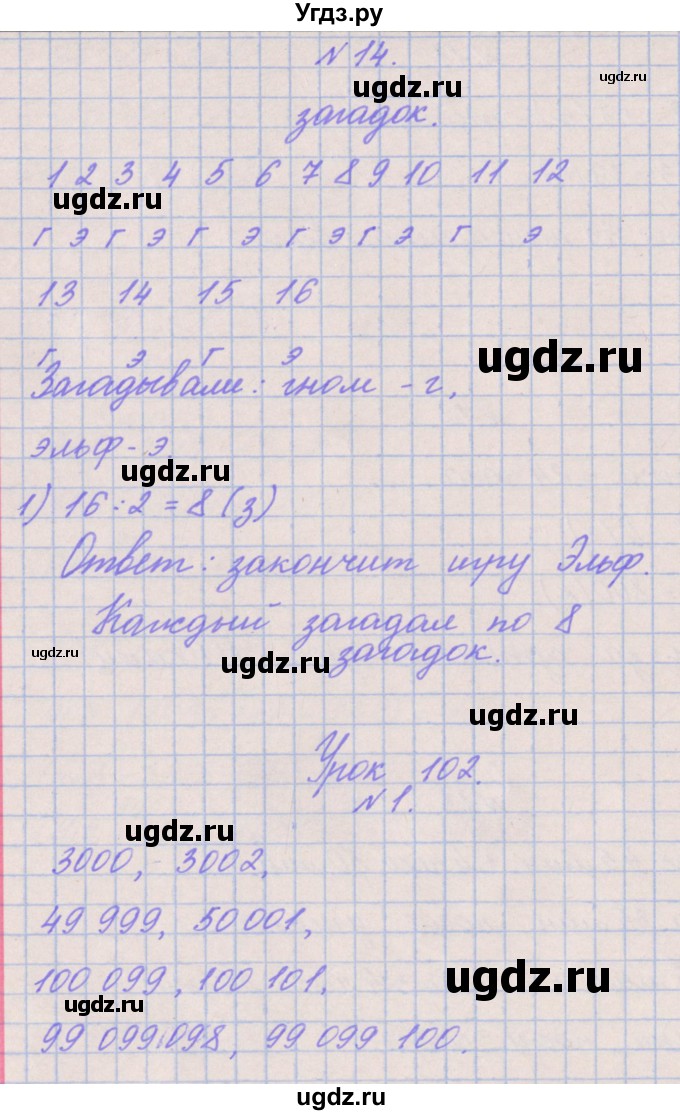 Угдз.ру
N 14.
ugdz.ru
ugdz.ru
загадок.
1 2 3 4 5 6 7 8 9 10 11 12
ugdz.ru
г э г э г э г э г э г э
13 14 15 16
ugdz.ru
г э г э
Загадывали: гном - г,
эльф - э.
ugdz.ru
1) 16 : 2 = 8 (з)
Ответ: закончит игру Эльф.
Каждый загадал по 8
ugdz.ru
загадок.
ugdz.ru
ugdz.ru
Урок 102.
N 1.
ugdz.ru
3000, 3002,
49 999, 50 001,
100 099, 100 101,
ugdz.ru
ugdz.ru
99 099 098, 99 099 100.
ugdz.ru